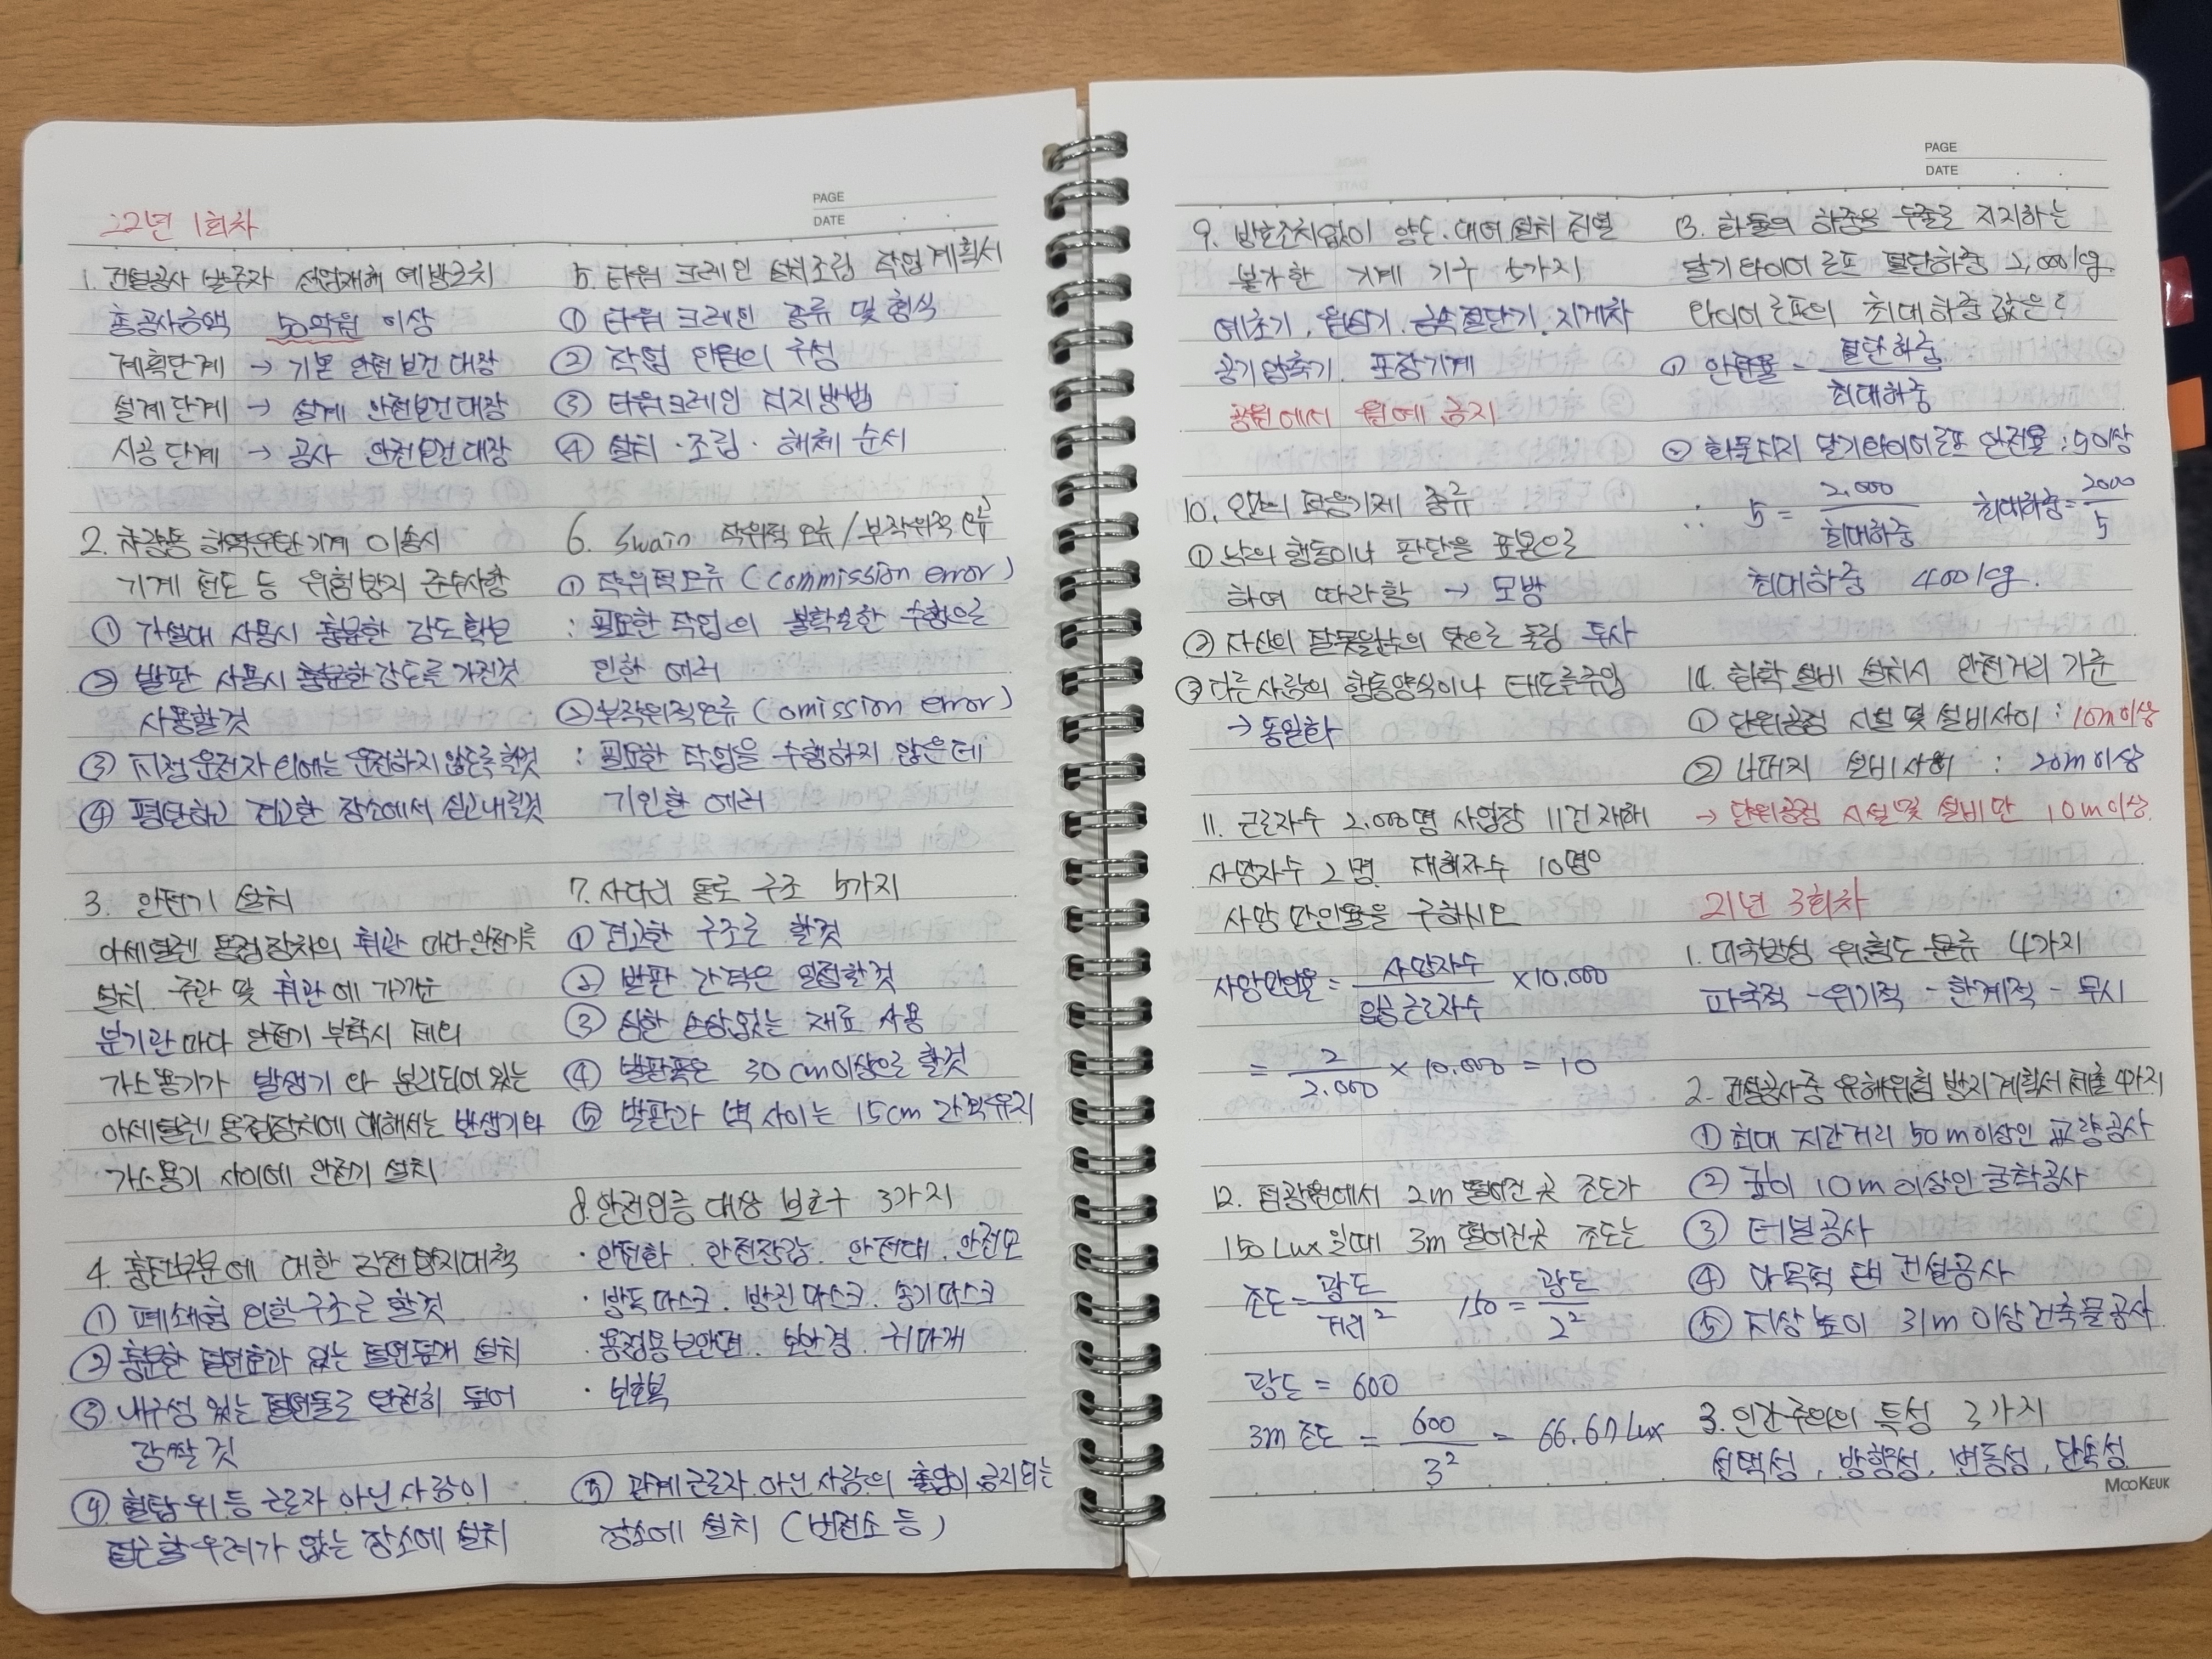 PAGE
DATE
22년 1회차
1. 건설공사 발주자 산업재해 예방조치
총공사금액 50억원 이상
계획단계 → 기본 안전보건대장
설계단계 → 설계 안전보건대장
시공단계 → 공사 안전보건대장
2. 차량용 하역운반기계 이송시
기계 전도 등 위험방지 준수사항
① 가설대 사용시 충분한 강도 확보
② 발판 사용시 충분한 강도를 가진것
사용할것
③ 지정운전자 외에는 운전하지 않도록 할것
④ 평탄하고 견고한 장소에서 싣고내릴것
3. 안전기 설치
아세틸렌 용접장치의 취관 마다 안전기를
설치. 주관 및 취관에 가까운
분기관 마다 안전기 부착시 제외
가스용기가 발생기와 분리되어 있는
아세틸렌 용접장치에 대해서는 발생기와
가스용기 사이에 안전기 설치
4. 충전부분에 대한 감전방지대책
① 폐쇄형 외함구조로 할것
② 충분한 절연효과 있는 절연덮개 설치
③ 내구성 있는 절연물로 완전히 덮어
감쌀 것
④ 철탑 위 등 근로자 아닌 사람이
접근할 우려가 없는 장소에 설치
5. 타워 크레인 설치조립 작업계획서
① 타워 크레인 종류 및 형식
② 작업 인원의 구성
③ 타워크레인 지지방법
④ 설치·조립·해체 순서
6. Swain 작위적 오류 / 부작위적 오류
① 작위적오류 (commission error)
: 필요한 작업의 불확실한 수행으로
인한 에러
② 부작위적오류 (omission error)
: 필요한 작업을 수행하지 않은데
기인한 에러
7. 사다리 통로 구조 5가지
① 견고한 구조로 할것
② 발판 간격은 일정할것
③ 심한 손상없는 재료 사용
④ 발판폭은 30cm이상으로 할것
⑤ 발판과 벽 사이는 15cm 간격유지
8. 안전인증 대상 보호구 3가지
· 안전화. 안전장갑. 안전대. 안전모
· 방독마스크. 방진마스크. 송기마스크
· 용접용보안면. 보안경. 귀마개
· 보호복
⑤ 관계근로자 아닌 사람의 출입이 금지되는
장소에 설치 (발전소 등)
PAGE
DATE
9. 방호조치없이 양도.대여.설치 진열
불가한 기계 기구 5가지
예초기. 원심기. 금속절단기. 지게차
공기압축기. 포장기계
공원에서 원예 금지
10. 인간의 적응기제 종류
① 남의 행동이나 판단을 표본으로
하여 따라함 → 모방
② 자신의 잘못을 남의 탓으로 돌림 투사
③ 다른사람의 행동양식이나 태도를 주입
→ 동일화
11. 근로자수 2,000명 사업장 11건 재해
사망자수 2명. 재해자수 10명
사망 만인율을 구하시오
사망만인율 = 사망자수 / 임금근로자수 ×10,000
= 2 / 2,000 × 10,000 = 10
12. 점광원에서 2m 떨어진곳 조도가
150 Lux일때 3m 떨어진곳 조도는
조도 = 광도 / 거리² 150 = 광도 / 2²
광도 = 600
3m 조도 = 600 / 3² = 66.67 Lux
13. 화물의 하중을 직접 지지하는
달기 와이어로프 절단하중 2,000kg.
와이어로프의 최대하중값은?
① 안전율 = 절단하중 / 최대하중
② 화물지지 달기와이어로프 안전율 : 5이상
∴ 5 = 2,000 / 최대하중 최대하중 = 2000 / 5
최대하중 400kg.
14. 화학설비 설치시 안전거리 기준
① 단위공정 시설 및 설비사이 : 10m이상
② 나머지 설비사이 : 20m이상
→ 단위공정 시설 및 설비만 10m이상.
21년 3회차
1. 미국방성 위험도 분류 4가지
파국적 - 위기적 - 한계적 - 무시
2. 건설공사중 유해위험 방지계획서 제출 4가지
① 최대 지간거리 50m이상인 교량공사
② 깊이 10m 이상인 굴착공사
③ 터널공사
④ 다목적 댐 건설공사
⑤ 지상높이 31m 이상건축물공사
3. 인간주의의 특성 3가지
선택성, 방향성, 변동성, 단속성
MOOKEUK